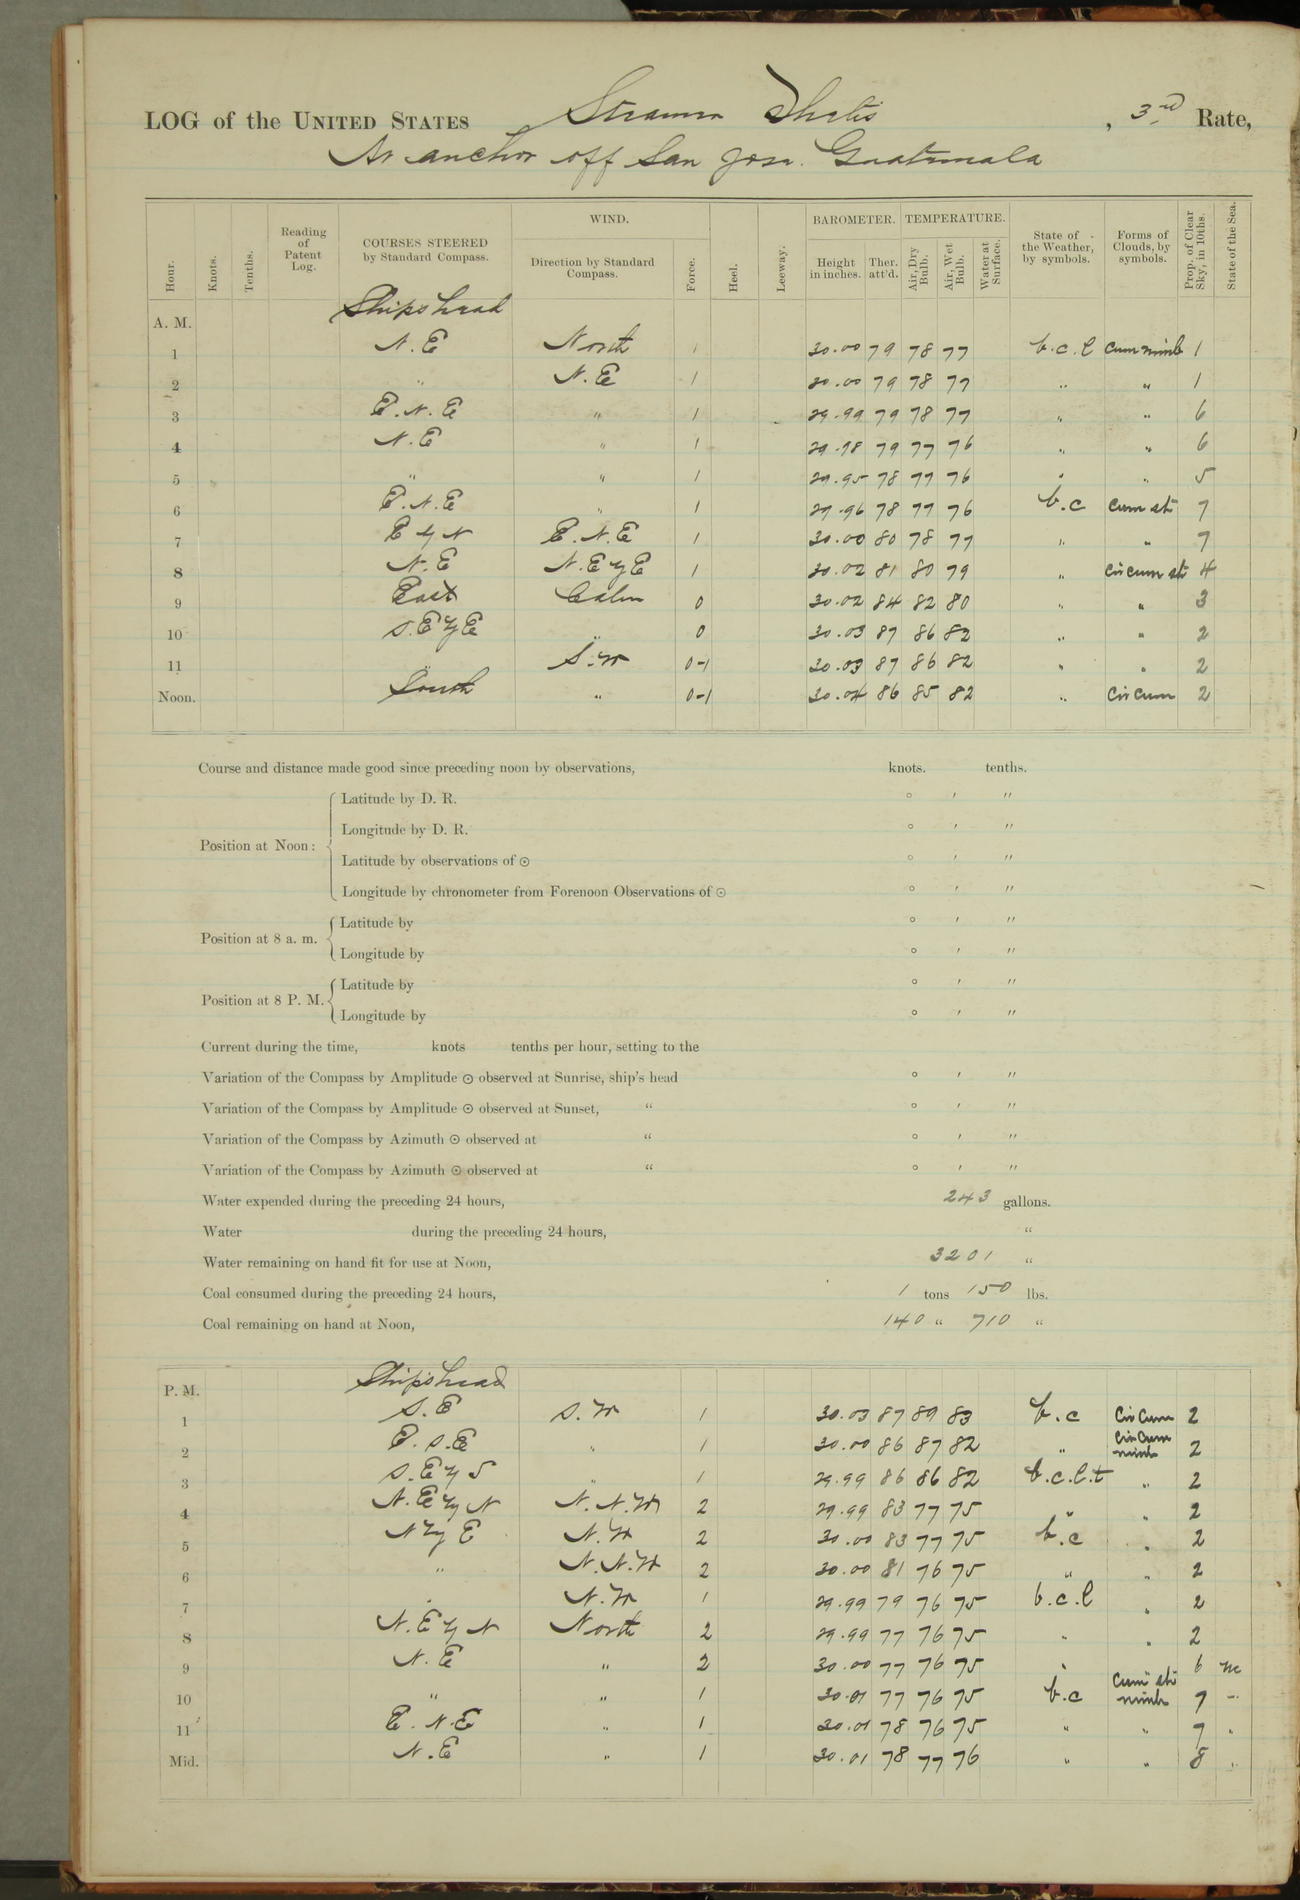 LOG of the UNITED STATES Steamer Thetis, 3rd Rate,
At anchor off San Jose. Guatemala
Hour. Knots. Tenths. Reading of Patent Log. COURSES STEERED by Standard Compass. WIND. Direction by Standard Compass. Force. Heel. Leeway. BAROMETER. Height in inches. Ther. att'd. TEMPERATURE. Air, Dry Bulb. Air, Wet Bulb. Water at Surface. State of the Weather, by symbols. Forms of Clouds, by symbols. Prop. of Clear Sky, in 10ths. State of the Sea.
A. M. Ships head
1 N.E North 1 30.00 79 78 77 b.c.l cum nimb 1
2 " N.E 1 30.00 79 78 77 " " 1
3 E.N.E " 1 29.99 79 78 77 " " 6
4 N.E " 1 29.98 79 77 76 " " 6
5 " " 1 29.95 78 77 76 " " 5
6 E.N.E " 1 29.96 78 77 76 b.c cum str 7
7 E y N E.N.E 1 30.00 80 78 77 " " 7
8 N.E N.E y E 1 30.02 81 80 79 " cir cum str 4
9 East Calm 0 30.02 84 82 80 " " 3
10 S.E y E " 0 30.03 87 86 82 " " 2
11 " S.W 0-1 30.03 87 86 82 " " 2
Noon. South " 0-1 30.04 86 85 82 " Cir Cum 2
Course and distance made good since preceding noon by observations, knots. tenths.
Position at Noon: Latitude by D. R. ° ′ ″
Longitude by D. R. ° ′ ″
Latitude by observations of ⊙ ° ′ ″
Longitude by chronometer from Forenoon Observations of ⊙ ° ′ ″
Position at 8 a. m. Latitude by ° ′ ″
Longitude by ° ′ ″
Position at 8 P. M. Latitude by ° ′ ″
Longitude by ° ′ ″
Current during the time, knots tenths per hour, setting to the
Variation of the Compass by Amplitude ⊙ observed at Sunrise, ship's head ° ′ ″
Variation of the Compass by Amplitude ⊙ observed at Sunset, " ° ′ ″
Variation of the Compass by Azimuth ⊙ observed at " ° ′ ″
Variation of the Compass by Azimuth ⊙ observed at " ° ′ ″
Water expended during the preceding 24 hours, 243 gallons.
Water during the preceding 24 hours, "
Water remaining on hand fit for use at Noon, 3201 "
Coal consumed during the preceding 24 hours, 1 tons 150 lbs.
Coal remaining on hand at Noon, 140 " 710 "
P. M. Ships head
1 S.E S.W 1 30.03 87 89 83 b.c Cir Cum 2
2 E.S.E " 1 30.00 86 87 82 " Cir Cum nimb 2
3 S.E y S " 1 29.99 86 86 82 b.c.l.t " 2
4 N.E y N N.N.W 2 29.99 83 77 75 " " 2
5 N y E N.W 2 30.00 83 77 75 b.c " 2
6 " N.N.W 2 30.00 81 76 75 " " 2
7 " N.W 1 29.99 79 76 75 b.c.l " 2
8 N.E y N North 2 29.99 77 76 75 " " 2
9 N.E " 2 30.00 77 76 75 " " 6 m
10 " " 1 30.01 77 76 75 b.c Cum str nimb 7 "
11 E.N.E " 1 30.01 78 76 75 " " 7 "
Mid. N.E " 1 30.01 78 77 76 " " 8 "